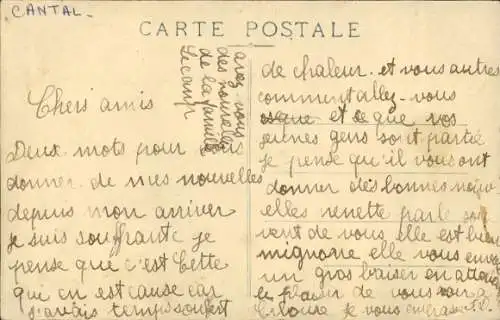 CANTAL
CARTE POSTALE
avez vous
des nouvelles
de la famille
Lecamp
Chers amis
Deux mots pour vous
donner de mes nouvelles
depuis mon arriver
je suis souffrante je
pense que c'est
qui en est cause car
j'avais temps souffert
de chaleur. et vous autres
comment allez-vous
et ce que vos
jeunes gens sont partie
je pense qu'il vous ont
donner des bonnes nouv
elles renette parle sou
vent de vous elle est bien
mignone elle vous envoie
un gros baiser en atten
le plaisir de vous voir a
je vous embrasse